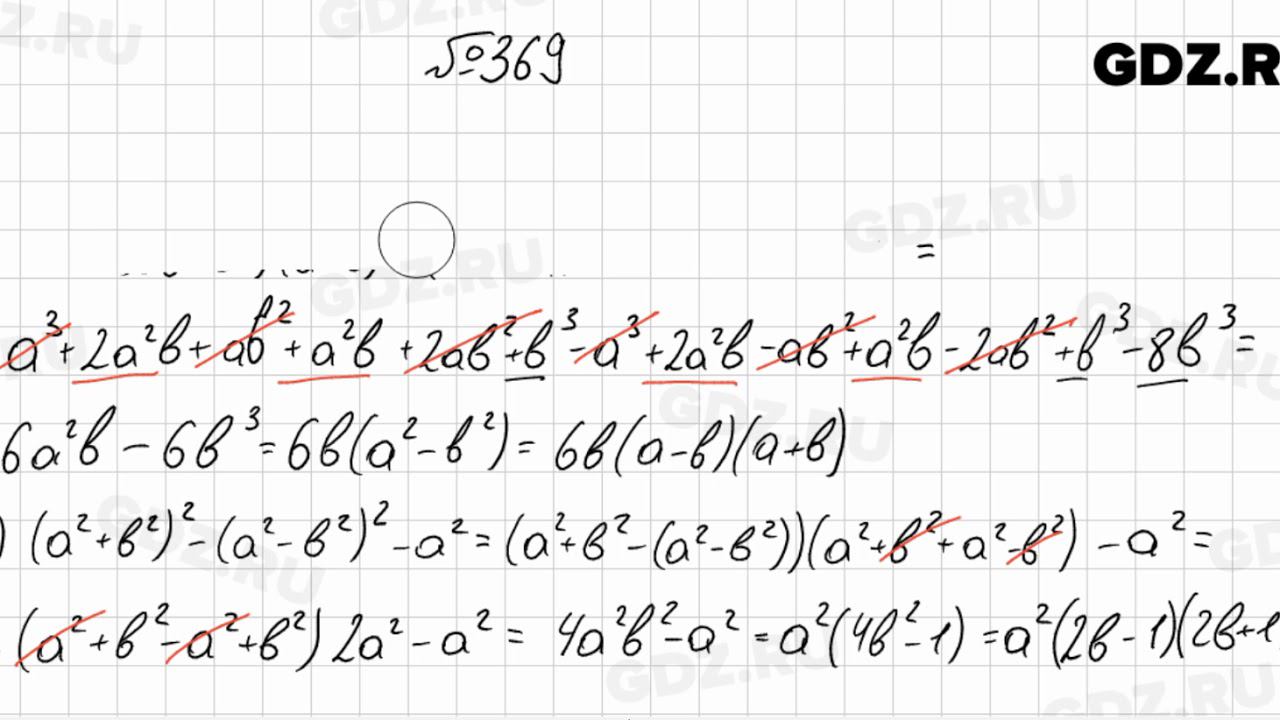 №369
GDZ.R
=
a³+2a²b+ab²+a²b+2ab²+b³-a³+2a²b-ab²+a²b-2ab²+b³-8b³=
6a²b-6b³=6b(a²-b²)=6b(a-b)(a+b)
) (a²+b²)²-(a²-b²)²-a²=(a²+b²-(a²-b²))(a²+b²+a²-b²)-a²=
(a²+b²-a²+b²)2a²-a²= 4a²b²-a²=a²(4b²-1)=a²(2b-1)(2b+1